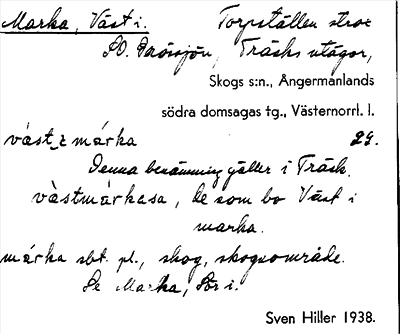 Marka, Väst i. Torpställen strax
SO. Daössjön, Träsks utägor,
Skogs s:n., Ångermanlands
södra domsagas tg., Västernorrl. l.
väst i márka 29.
Denna benämning gäller i Träsk.
vàstmárkasa, de som bo Väst i
marka.
márka sbt. pl., skog, skogsområde.
Se Marka, Sör i.
Sven Hiller 1938.